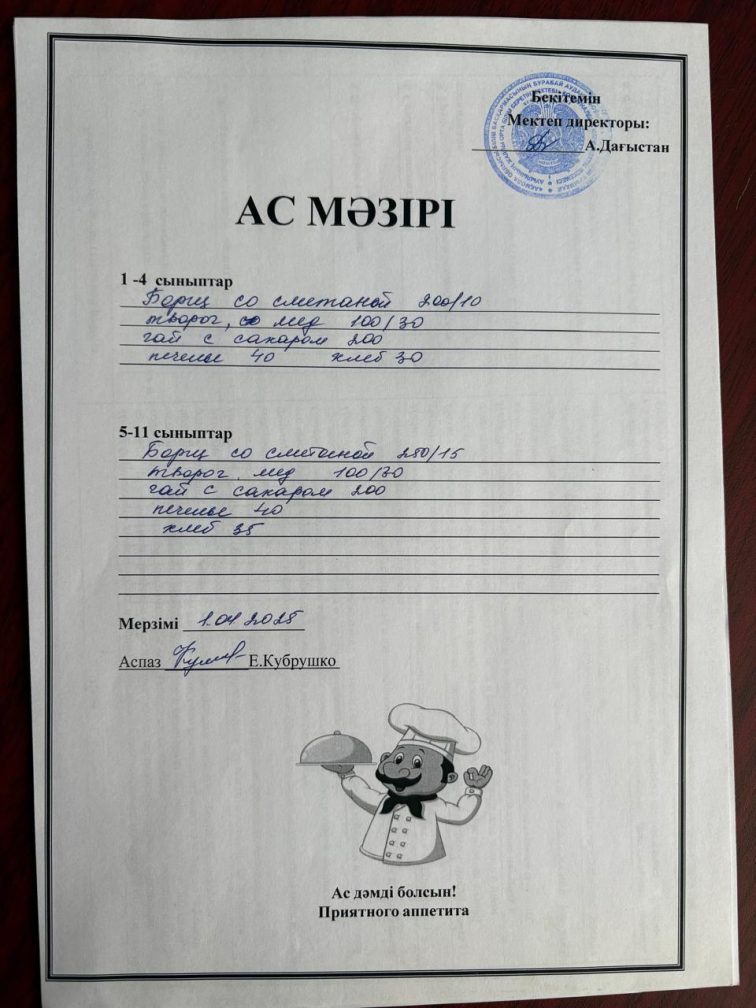 Бекітемін
Мектеп директоры:
А.Дағыстан
АС МӘЗІРІ
1 -4 сыныптар
Борщ со сметаной 200/10
творог, со мед 100/30
чай с сахаром 200
печенье 40 хлеб 30
5-11 сыныптар
Борщ со сметаной 250/15
творог мед 100/30
чай с сахаром 200
печенье 40
хлеб 35
Мерзімі 1.04 2025
Аспаз Е.Кубрушко
Ас дәмді болсын!
Приятного аппетита